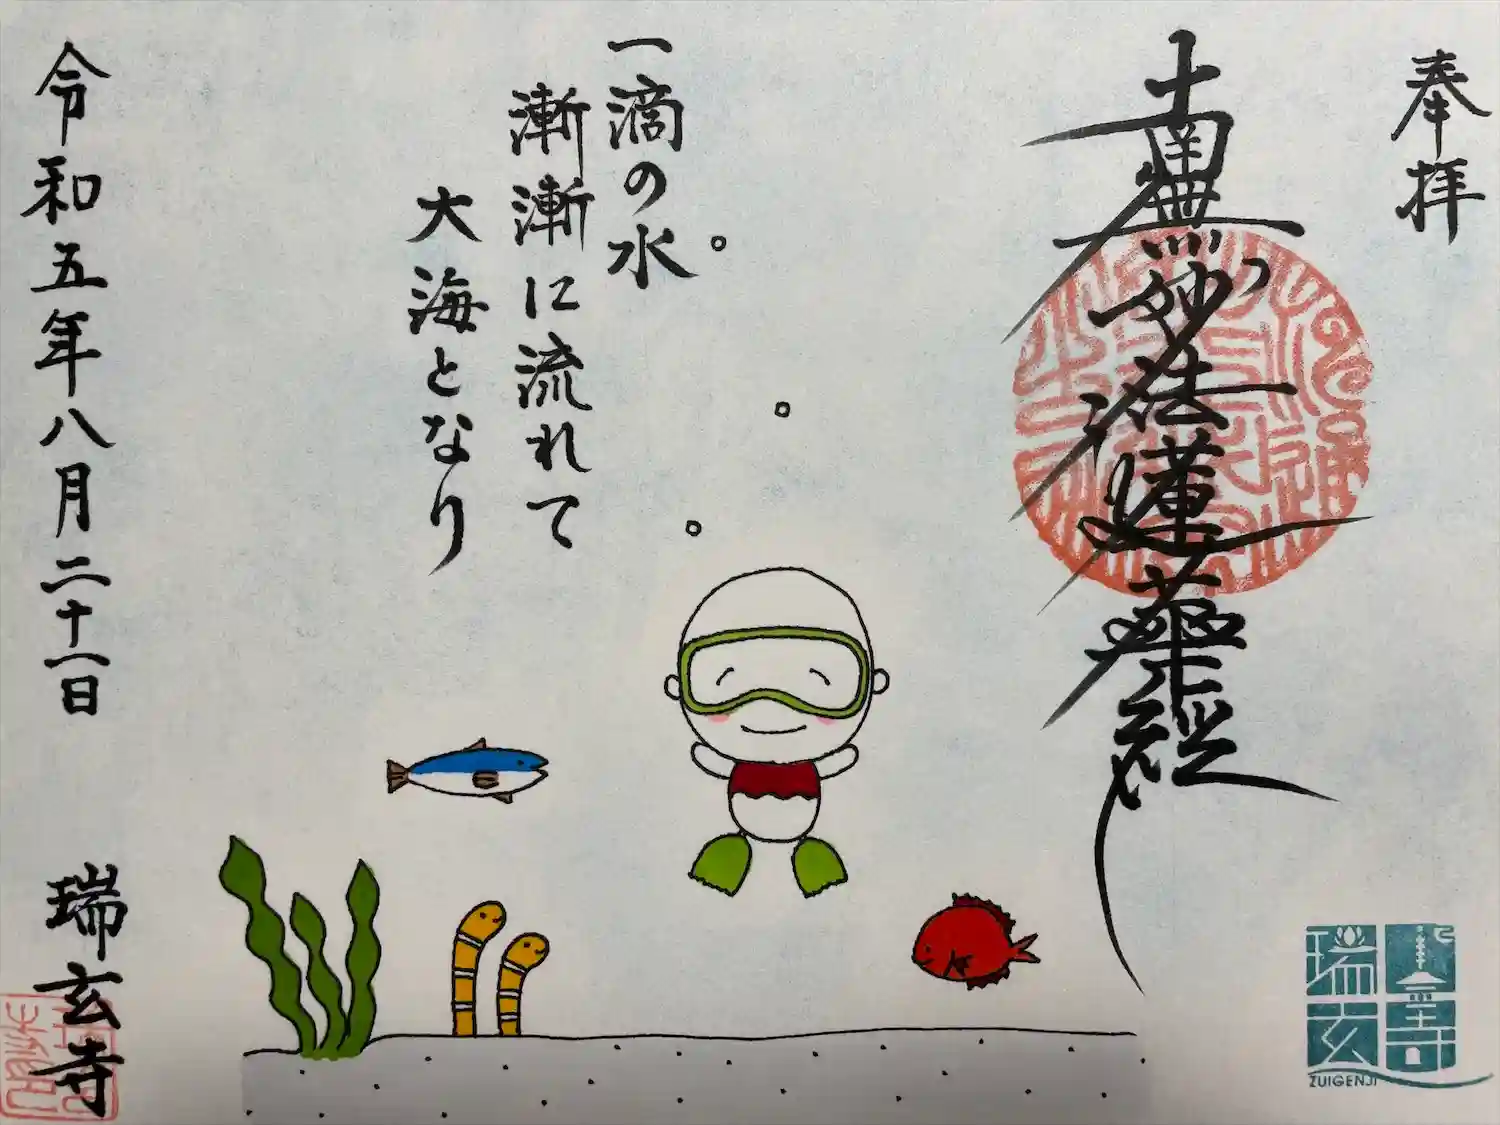 奉拝
南無妙法蓮華経
一滴の水
漸漸に流れて
大海となり
令和五年八月二十一日
瑞玄寺
瑞玄寺
ZUIGENJI